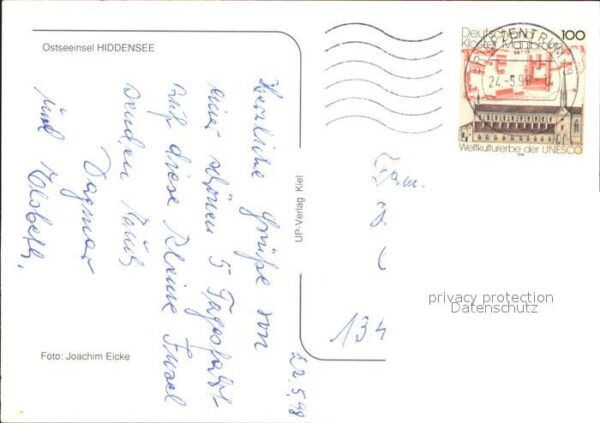 Ostseeinsel HIDDENSEE
Herzliche Grüße von
einer schönen 5 Tagesfahrt
auf diese kleine Insel
senden Euch
Dagmar
und Elsbeth.
22.5.98
Foto: Joachim Eicke
UP-Verlag Kiel
Deutschland 100
Kloster Maulbronn
BRIEFZENTRUM 18
24.-5.98
Weltkulturerbe der UNESCO
Fam.
134
privacy protection
Datenschutz